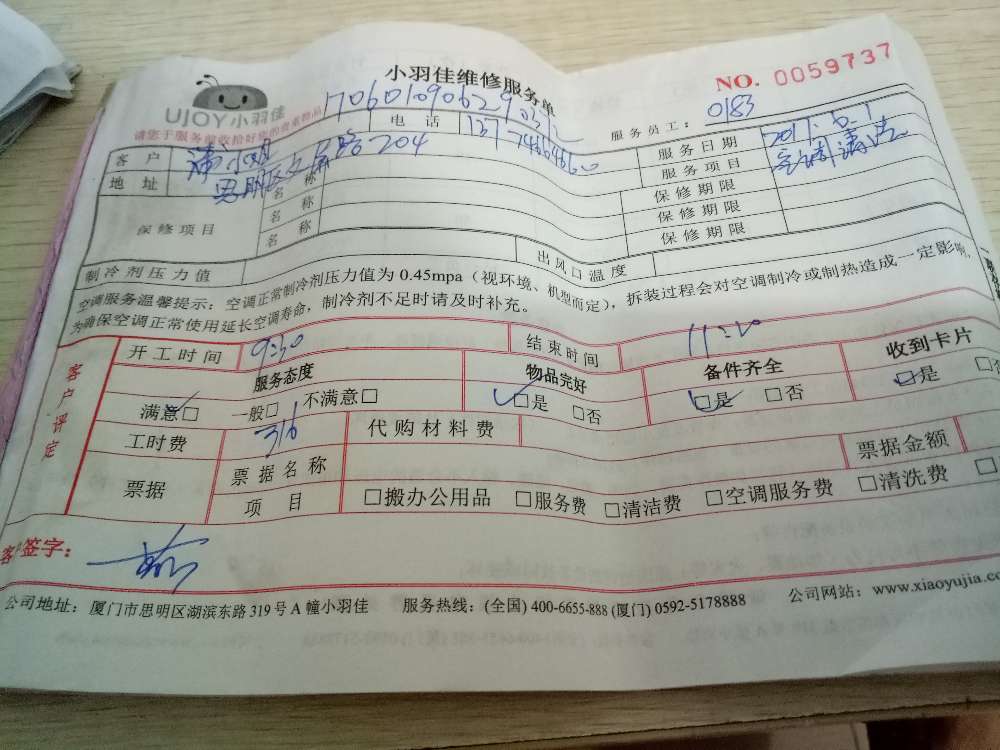 小羽佳维修服务单
NO. 0059737
UJOY小羽佳
服务员工: 0183
客户
电话
服务日期
地址 204
服务项目 空调清洗
保修项目
名称 保修期限
名称 保修期限
名称 保修期限
制冷剂压力值 出风口温度
空调服务温馨提示: 空调正常制冷剂压力值为 0.45mpa (视环境、机型而定), 拆装过程会对空调制冷或制热造成一定影响,
为确保空调正常使用延长空调寿命, 制冷剂不足时请及时补充。
客户评定
开工时间 9:30 结束时间 11:20
服务态度 物品完好 备件齐全 收到卡片
满意□ 一般□ 不满意□ □是 □否 □是 □否 □是
工时费 316 代购材料费
票据 票据名称 票据金额
项目 □搬办公用品 □服务费 □清洁费 □空调服务费 □清洗费
客户签字:
公司地址: 厦门市思明区湖滨东路319号A幢小羽佳 服务热线: (全国) 400-6655-888 (厦门) 0592-5178888 公司网站: www.xiaoyujia.co